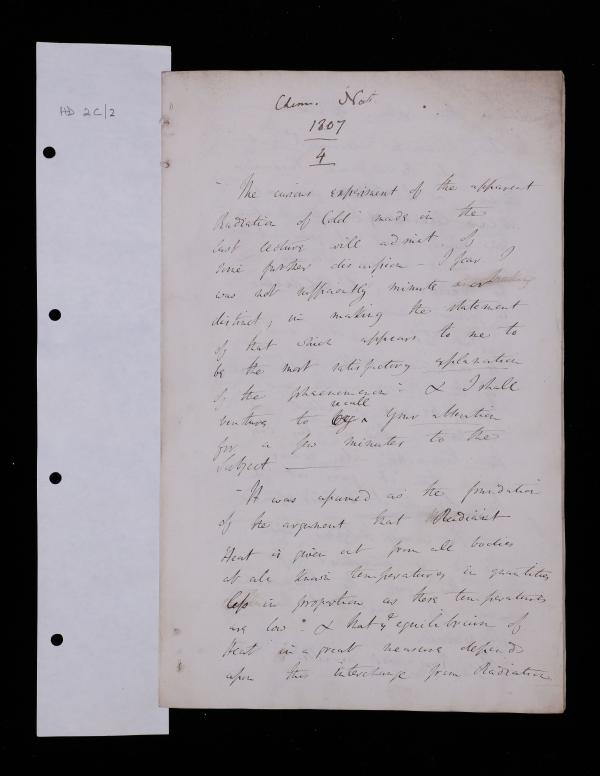 HD 2C/2
Chem. Not
1807
4
"The curious experiment of the apparent
Radiation of Cold made in the
last lecture will admit of
some further discussion – I fear I
was not sufficiently minute or
distinct, in making the statement
of that which appears to me to
be the most satisfactory explanation
of the phaenomenon". & I shall
recall
venture to beg your attention
for a few minutes to the
Subject —
"It was assumed as the foundation
of the argument that Radiant
Heat is given out from all bodies
at all known temperatures in quantities
less in proportion as these temperatures
are low". & that ye equilibrium of
Heat in a great measure depends
upon this interchange from Radiation